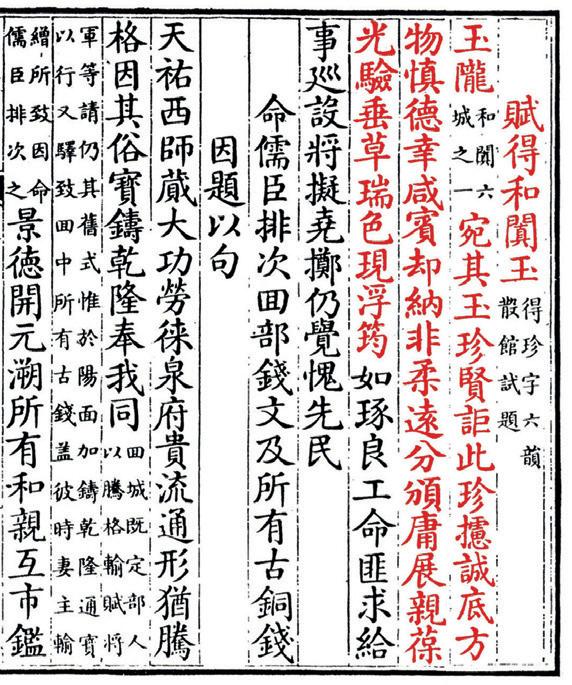 賦得和闐玉得珍字六韻散館試題
玉隴和闐六城之一宛其玉珍賢詎此珍攄誠底方
物慎德幸咸賓却納非柔遠分頒庸展親葆
光驗垂草瑞色現浮筠如琢良工命匪求給
事巡設將擬堯擲仍覺愧先民
命儒臣排次囬部錢文及所有古銅錢
因題以句
天祐西師蕆大功勞徠泉府貴流通形猶騰
格因其俗寶鑄乾隆奉我同囬城既定部人以騰格輸賦將
軍等請仍其舊式惟於陽面加鑄乾隆通寶以行又驛致囬中所有古錢蓋彼時妻主輸
繒所致因命儒臣排次之景德開元溯所有和親互市鑑